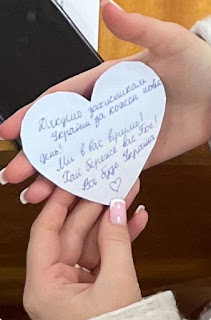 Дякуємо, захисникам
України за кожен новий
день!
Ми в вас віримо!
Хай береже вас Бог!
Все буде Україна